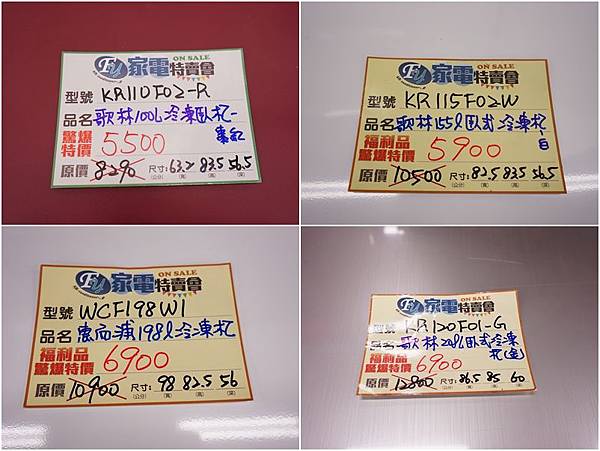 ON SALE
家電特賣會
型號 KR110F02-R
品名 歌林100L冷凍臥櫃-
棗紅
驚爆特價 5500
原價 8290 尺寸: 63.2 83.5 56.5
(公分) (寬) (高) (深)
ON SALE
家電特賣會
型號 KR115F02W
品名 歌林155l臥式冷凍櫃
白
福利品
驚爆特價 5900
原價 10500 尺寸: 82.5 83.5 56.5
(公分) (寬) (高) (深)
ON SALE
家電特賣會
型號 WCF198W1
品名 惠而浦198l冷凍櫃
福利品
驚爆特價 6900
原價 10900 尺寸: 98 82.5 56
(公分) (寬) (高) (深)
ON SALE
家電特賣會
型號 KR120F01-G
品名 歌林20l臥式冷凍
櫃(金)
福利品
驚爆特價 6900
原價 12800 尺寸: 86.5 85 60
(公分) (寬) (高) (深)